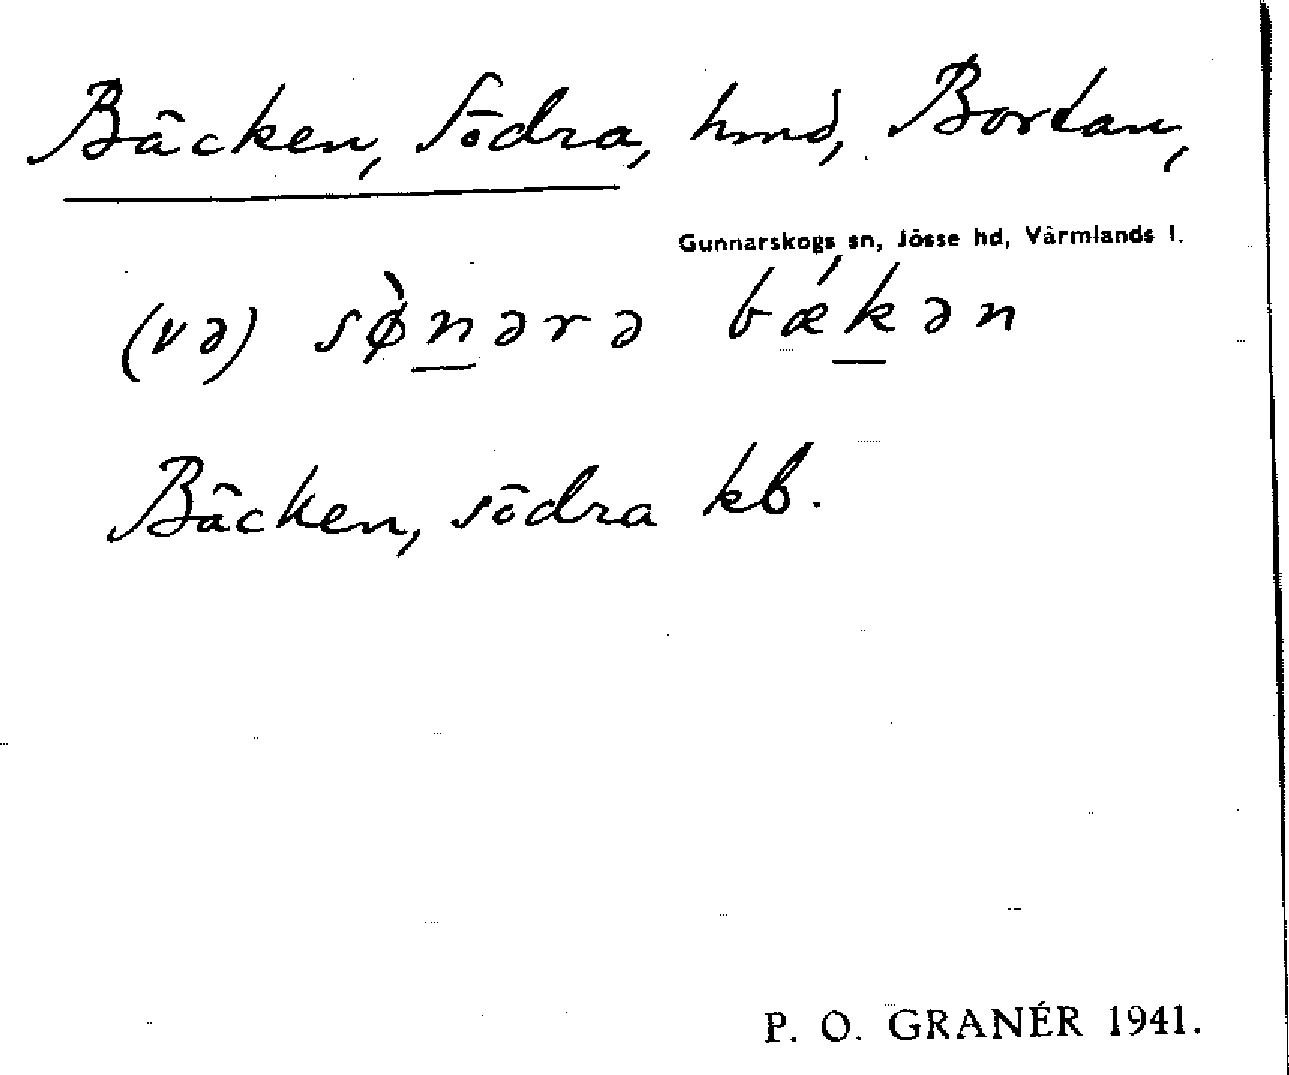 Bäcken, Södra, hmd, Bortan,
Gunnarskogs sn, Jösse hd, Värmlands l.
(və) sø̀nərə bǽkən
Bäcken, södra kb.
P. O. GRANÉR 1941.